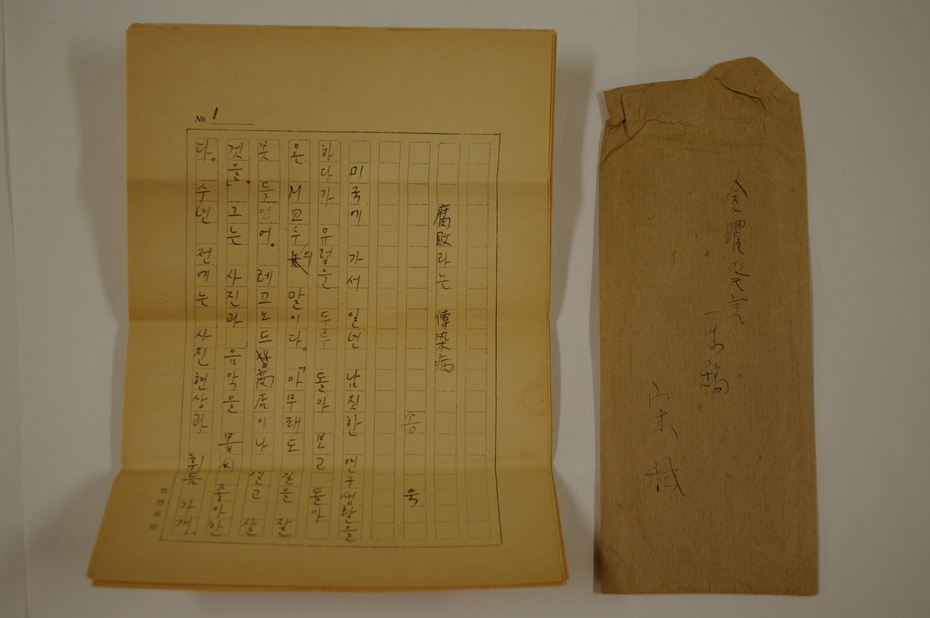 No. 1
腐敗라는 傳染病
송 욱
미국에 가서 일년 남짓한 연구생활을
하다가 유럽을 두루 돌아 보고 돌아
온 M교수의 말이다. 「아무래도 길을 잘
못 들었어. 레코오드 商店이나 열고 살
것을」. 그는 사진과 음악을 몹시 좋아한
다. 수년 전에는 사진현상과 가게.
金曜
原稿
宋 稶